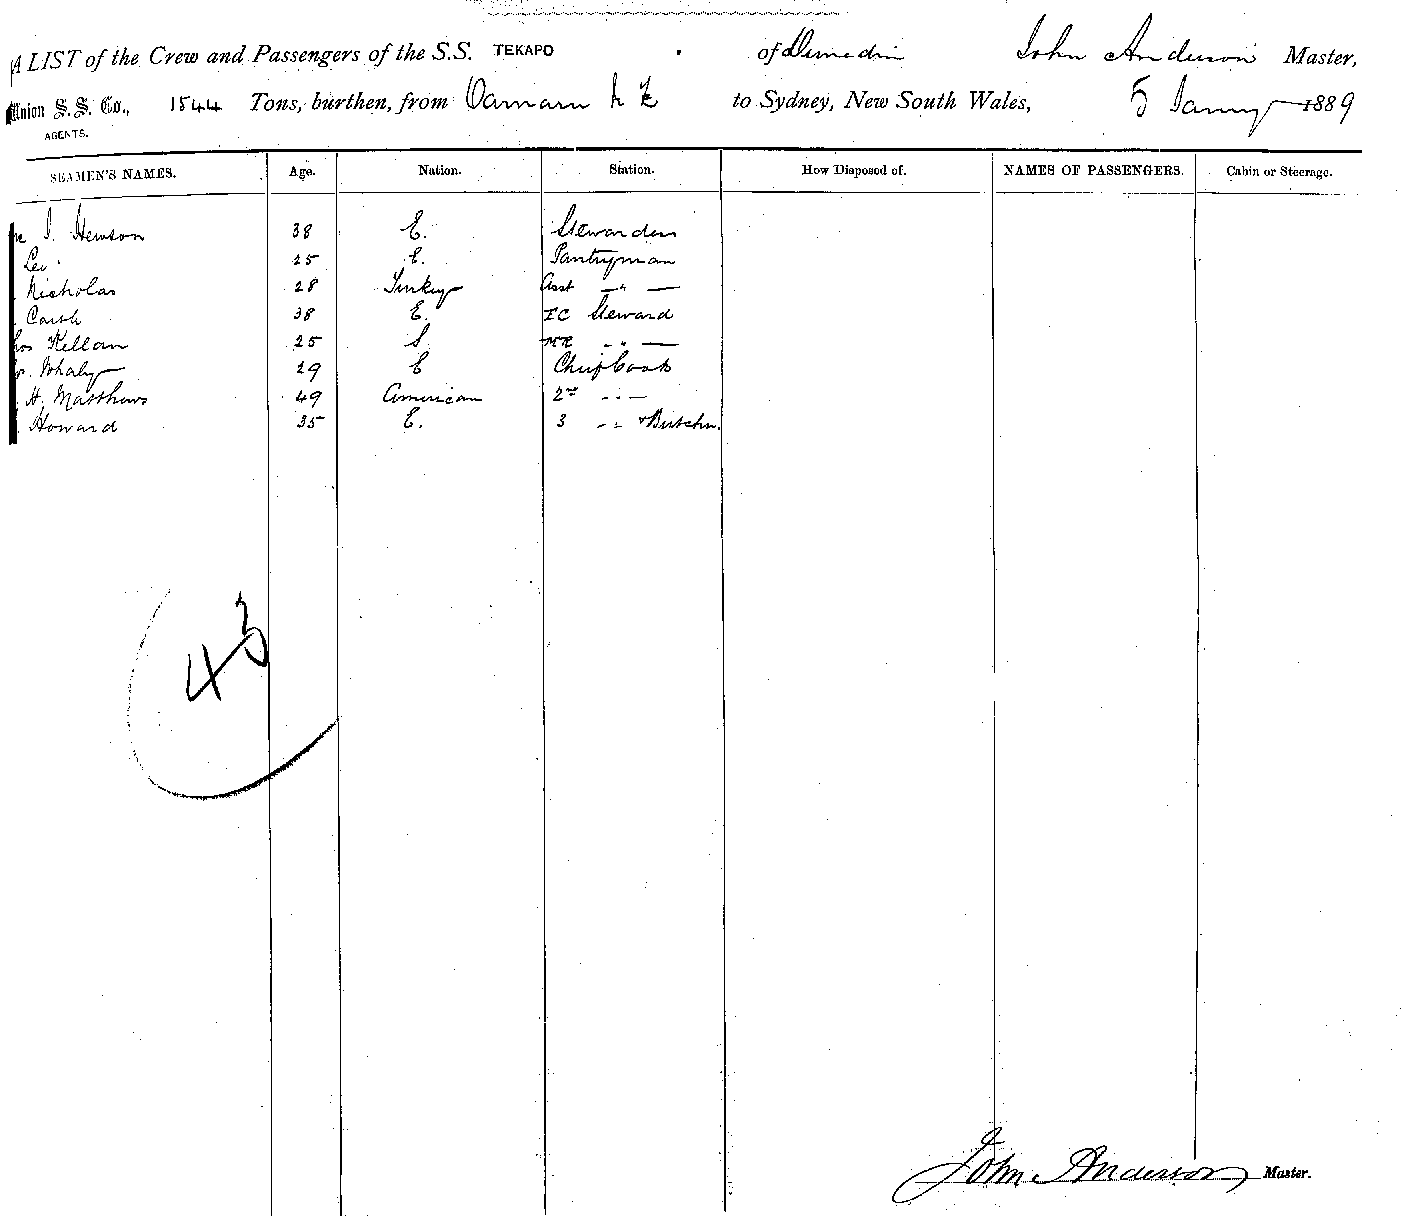 A LIST of the Crew and Passengers of the S.S. TEKAPO of Dunedin John Anderson Master,
Union S. S. Co., 1544 Tons, burthen, from Oamaru N Z to Sydney, New South Wales, 5 Janury 1889
AGENTS.
SEAMEN'S NAMES. Age. Nation. Station. How Disposed of. NAMES OF PASSENGERS. Cabin or Steerage.
J. Hewson 38 E. Stewardess
Lei 25 E. Pantryman
Nicholas 28 Turkey Asst " —
38 E. FC Steward
Kellan 25 S " —
Whaly 29 E Chief Cook
H. Matthews 49 American 2nd " —
Howard 35 E. 3 " & Butcher.
43
John Anderson Master.